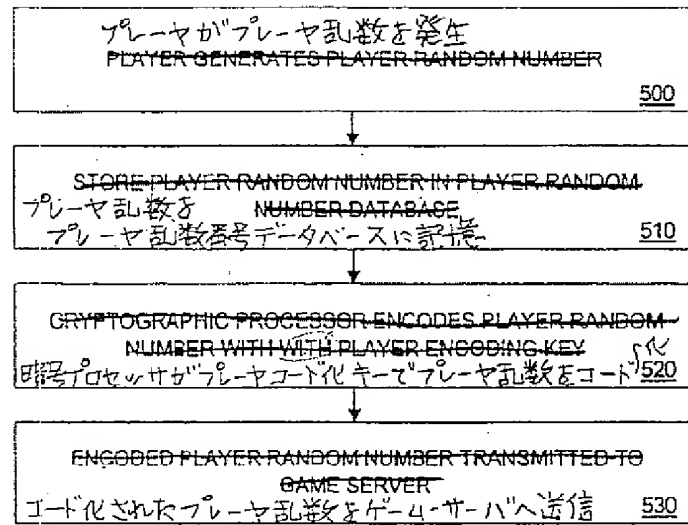 プレーヤがプレーヤ乱数を発生
PLAYER GENERATES PLAYER RANDOM NUMBER
500
STORE PLAYER RANDOM NUMBER IN PLAYER RANDOM
NUMBER DATABASE
プレーヤ乱数を
プレーヤ乱数番号データベースに記憶
510
CRYPTOGRAPHIC PROCESSOR ENCODES PLAYER RANDOM
NUMBER WITH WITH PLAYER ENCODING KEY
暗号プロセッサがプレーヤコード化キーでプレーヤ乱数をコード化
520
ENCODED PLAYER RANDOM NUMBER TRANSMITTED TO
GAME SERVER
コード化されたプレーヤ乱数をゲームーサーバへ送信
530